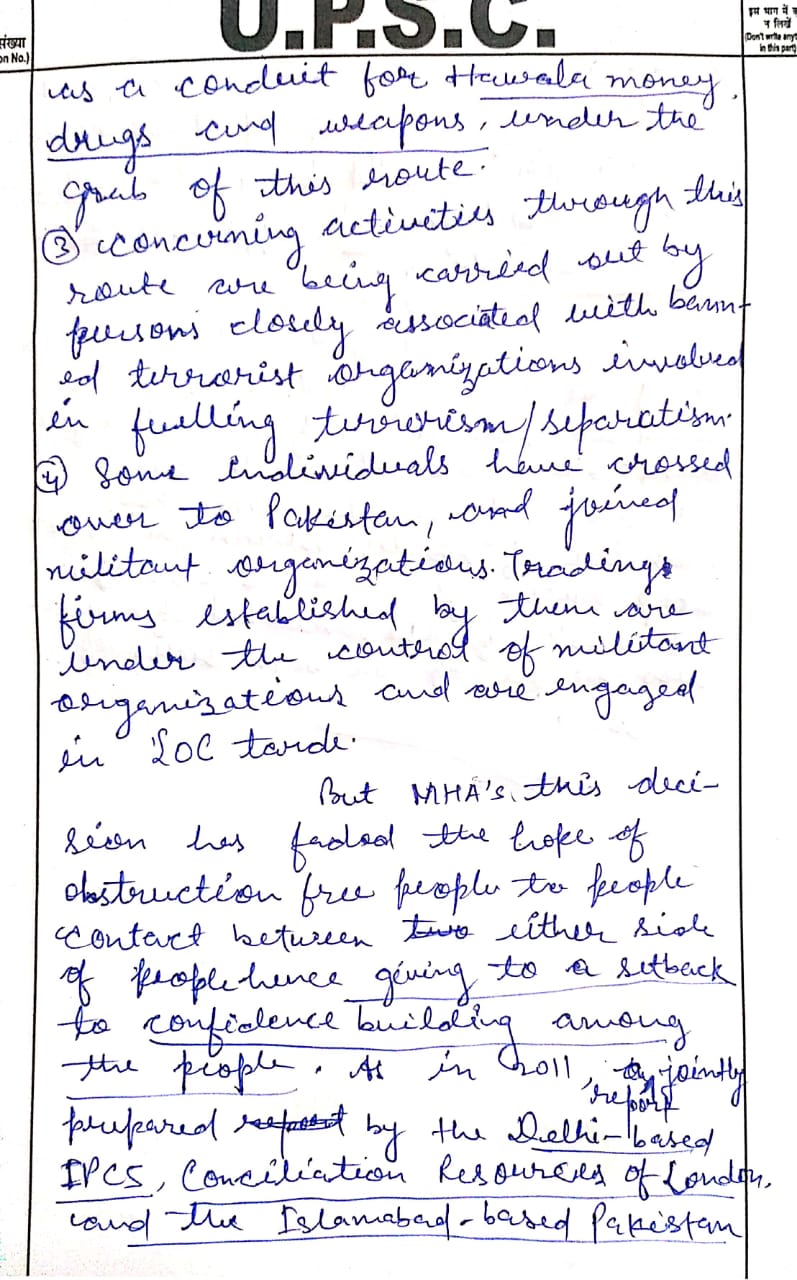 U.P.S.C.
संख्या
on No.)
इस भाग में
न लिखें
(Don't write any
in this part)
as a conduit for Hawala money,
drugs and weapons, under the
grab of this route.
③ Concerning activities through this
route are being carried out by
persons closely associated with bann-
ed terrorist organizations involved
in fuelling terrorism/separatism.
④ Some individuals have crossed
over to Pakistan, and joined
militant organizations. Trading
firms established by them are
under the control of militant
organizations and are engaged
in LOC tarde.
But MHA's this deci-
sion has faded the hope of
obstruction free people to people
contact between two either side
of people hence giving to a setback
to confidence building among
the people. As in 2011, a jointly
report
prepared report by the Delhi-based
IPCS, Conciliation Resources of London,
and the Islamabad-based Pakistan